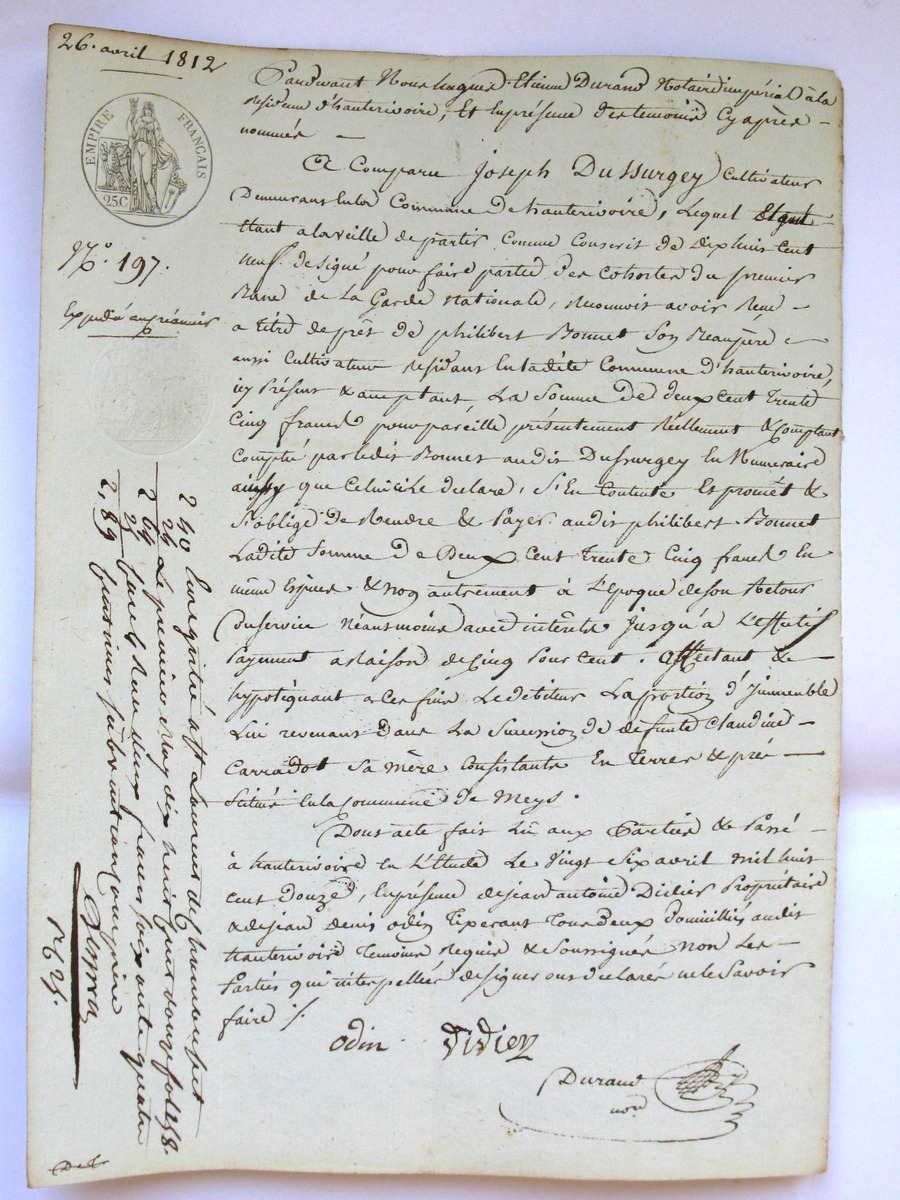 26. avril 1812
EMPIRE FRANÇAIS
25C
N.o 197.
Expédié au créancier
Pardevant Nous Etienne Durand Notaire impérial à la
Residence d'hauterivoire, Et En présence des temoins Cy après
nommés
A Comparu Joseph Dussurgey Cultivateur
Demeurant En la Commune de hauterivoire, Lequel
Etant a la veille de partir Comme Conscrit de dix huit cent
neuf designé pour faire partie des Cohortes du premier
Banc de La Garde nationale, Reconnoit avoir Recu
a titre de prêt de philibert Bonnet Son Beaupère
aussi Cultivateur residant En la dite Commune d'hauterivoire,
icy Présent & acceptant La Somme De deux cent trente
Cinq francs pour pareille présentement Réellement & Comptant
Compté par ledit Bonnet audit Dussurgey En Numeraire
ainsy que Celui ci Le declare, S'En Contente Et promèt &
S'oblige de Rendre & Payer audit philibert Bonnet
Ladite Somme De Deux Cent trente Cinq francs En
même Espèces & non autrement à L'époque de son Retour
Du service Néantmoins avec intérêts jusqu'à L'Effectif
Payement a Raison de Cinq Pour Cent. Affectant &
hypotéquant a Ces fins Le debiteur La portion d'Immeuble
Lui revenant Dans La Succession de defunte Claudine
Carradot Sa mère Consistante En Terres & prés
Scitués En la Commune de Meys.
Dont acte fait Lu aux Parties & Passé
à hauterivoire En L'Etude Le Vingt Six avril mil huit
cent Douze, En présence de jean antoine Didier Propriétaire
& de jean denis odin Tixerant Tous Deux domiciliés audit
hauterivoire Temoins Requis & Soussignés non Les
Parties qui interpellées de signer ont declaré ne le Savoir
faire ./.
odin Didier
Durand
nore
2 40 Enregistré à St Laurent de Chamousset
24 Le premier May dix huit cent douze fol 158.
2 64 Recu deux francs soixante quatre
25
2,89 centimes subvention comprise